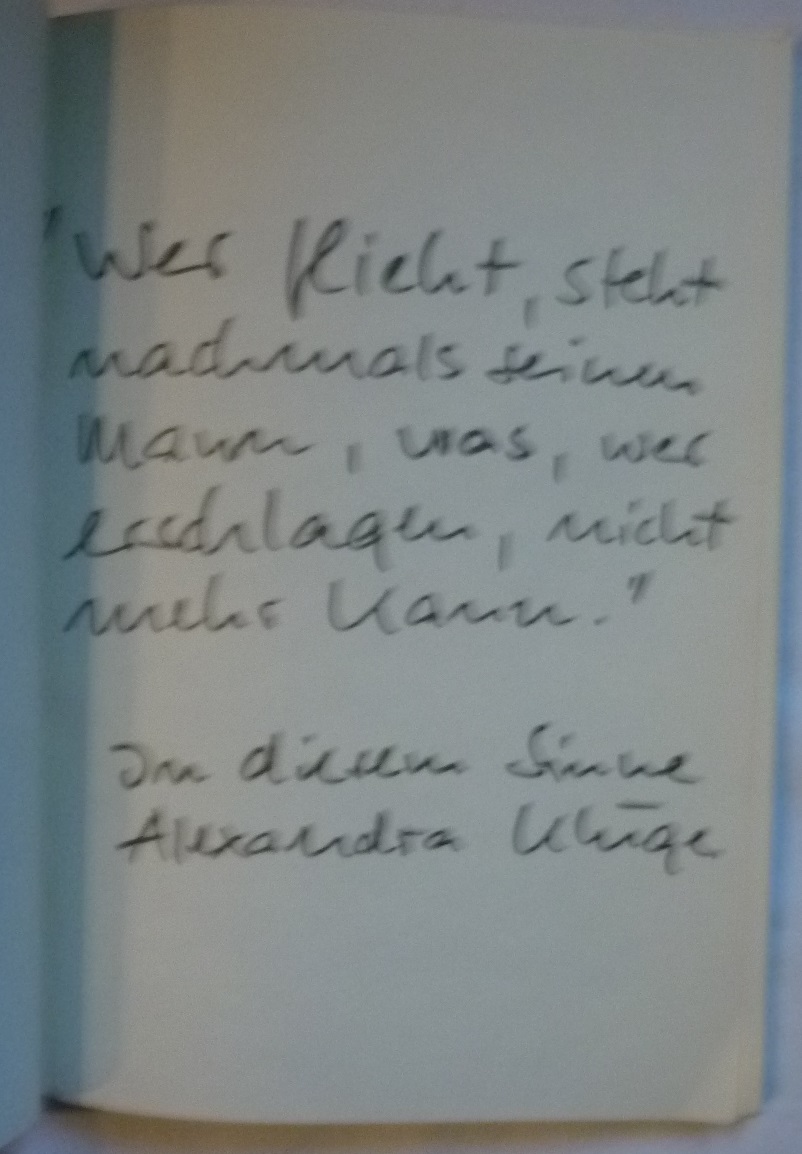 "Wer flieht, steht
nachmals seinen
Mann, was, wer
erschlagen, nicht
mehr kann."
In diesem Sinne
Alexandra Kluge